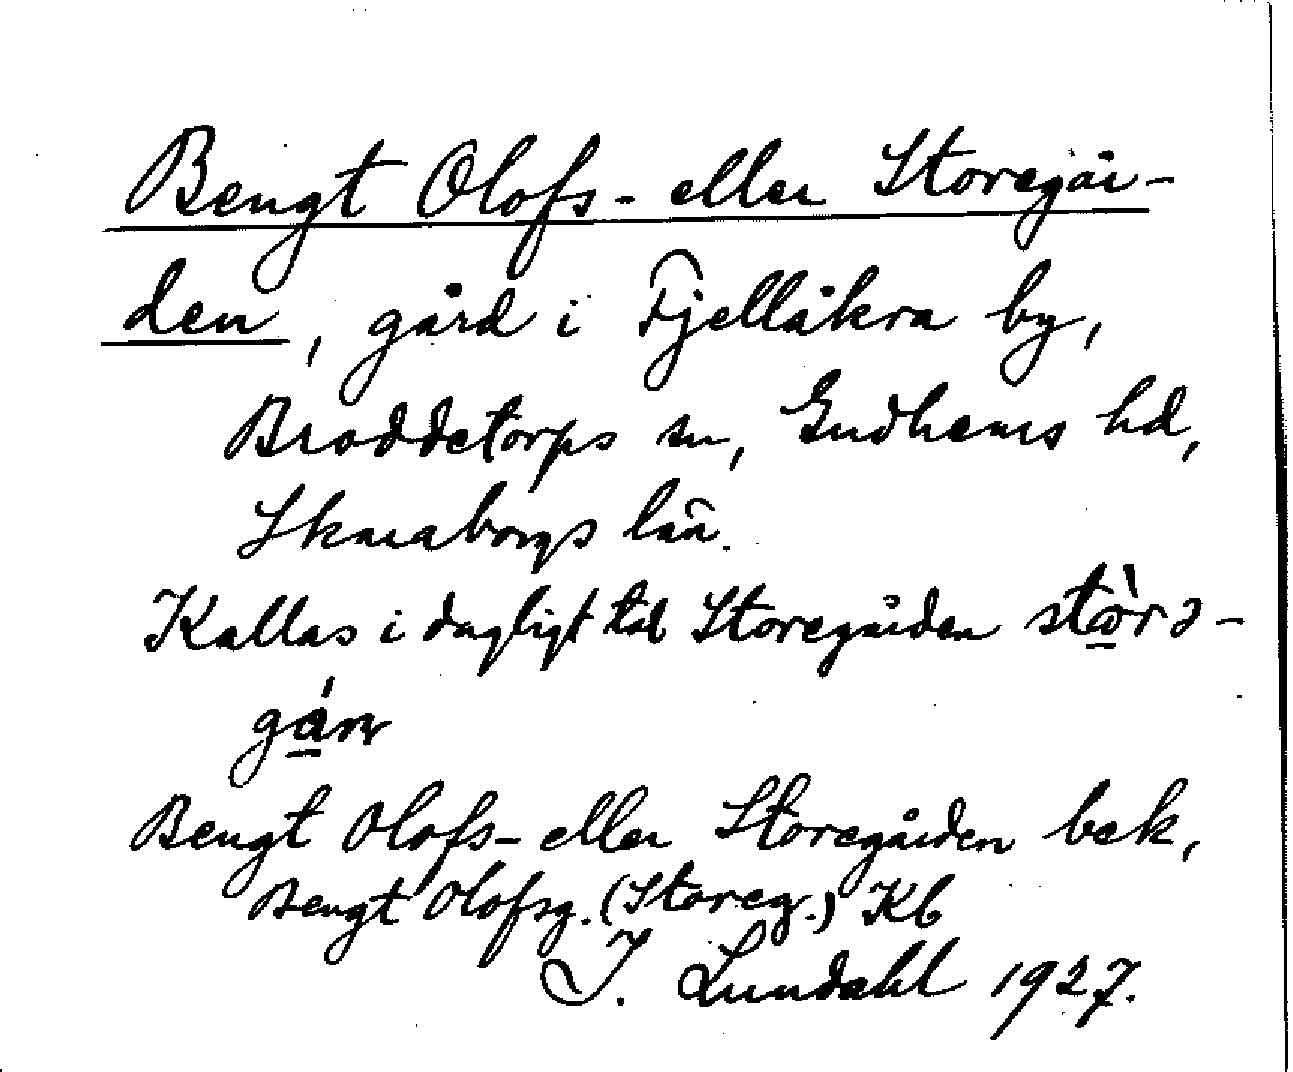 Bengt Olofs- eller Storegår-
den, gård i Fjellåkra by,
Broddetorps sn, Gudhems hd,
Skaraborgs län.
Kallas i dagligt tal Storegården stò̠rə-
gá̠n
Bengt Olofs- eller Storegården bek,
Bengt Olofsg. (Storeg.) Kb
I. Lundahl 1927.